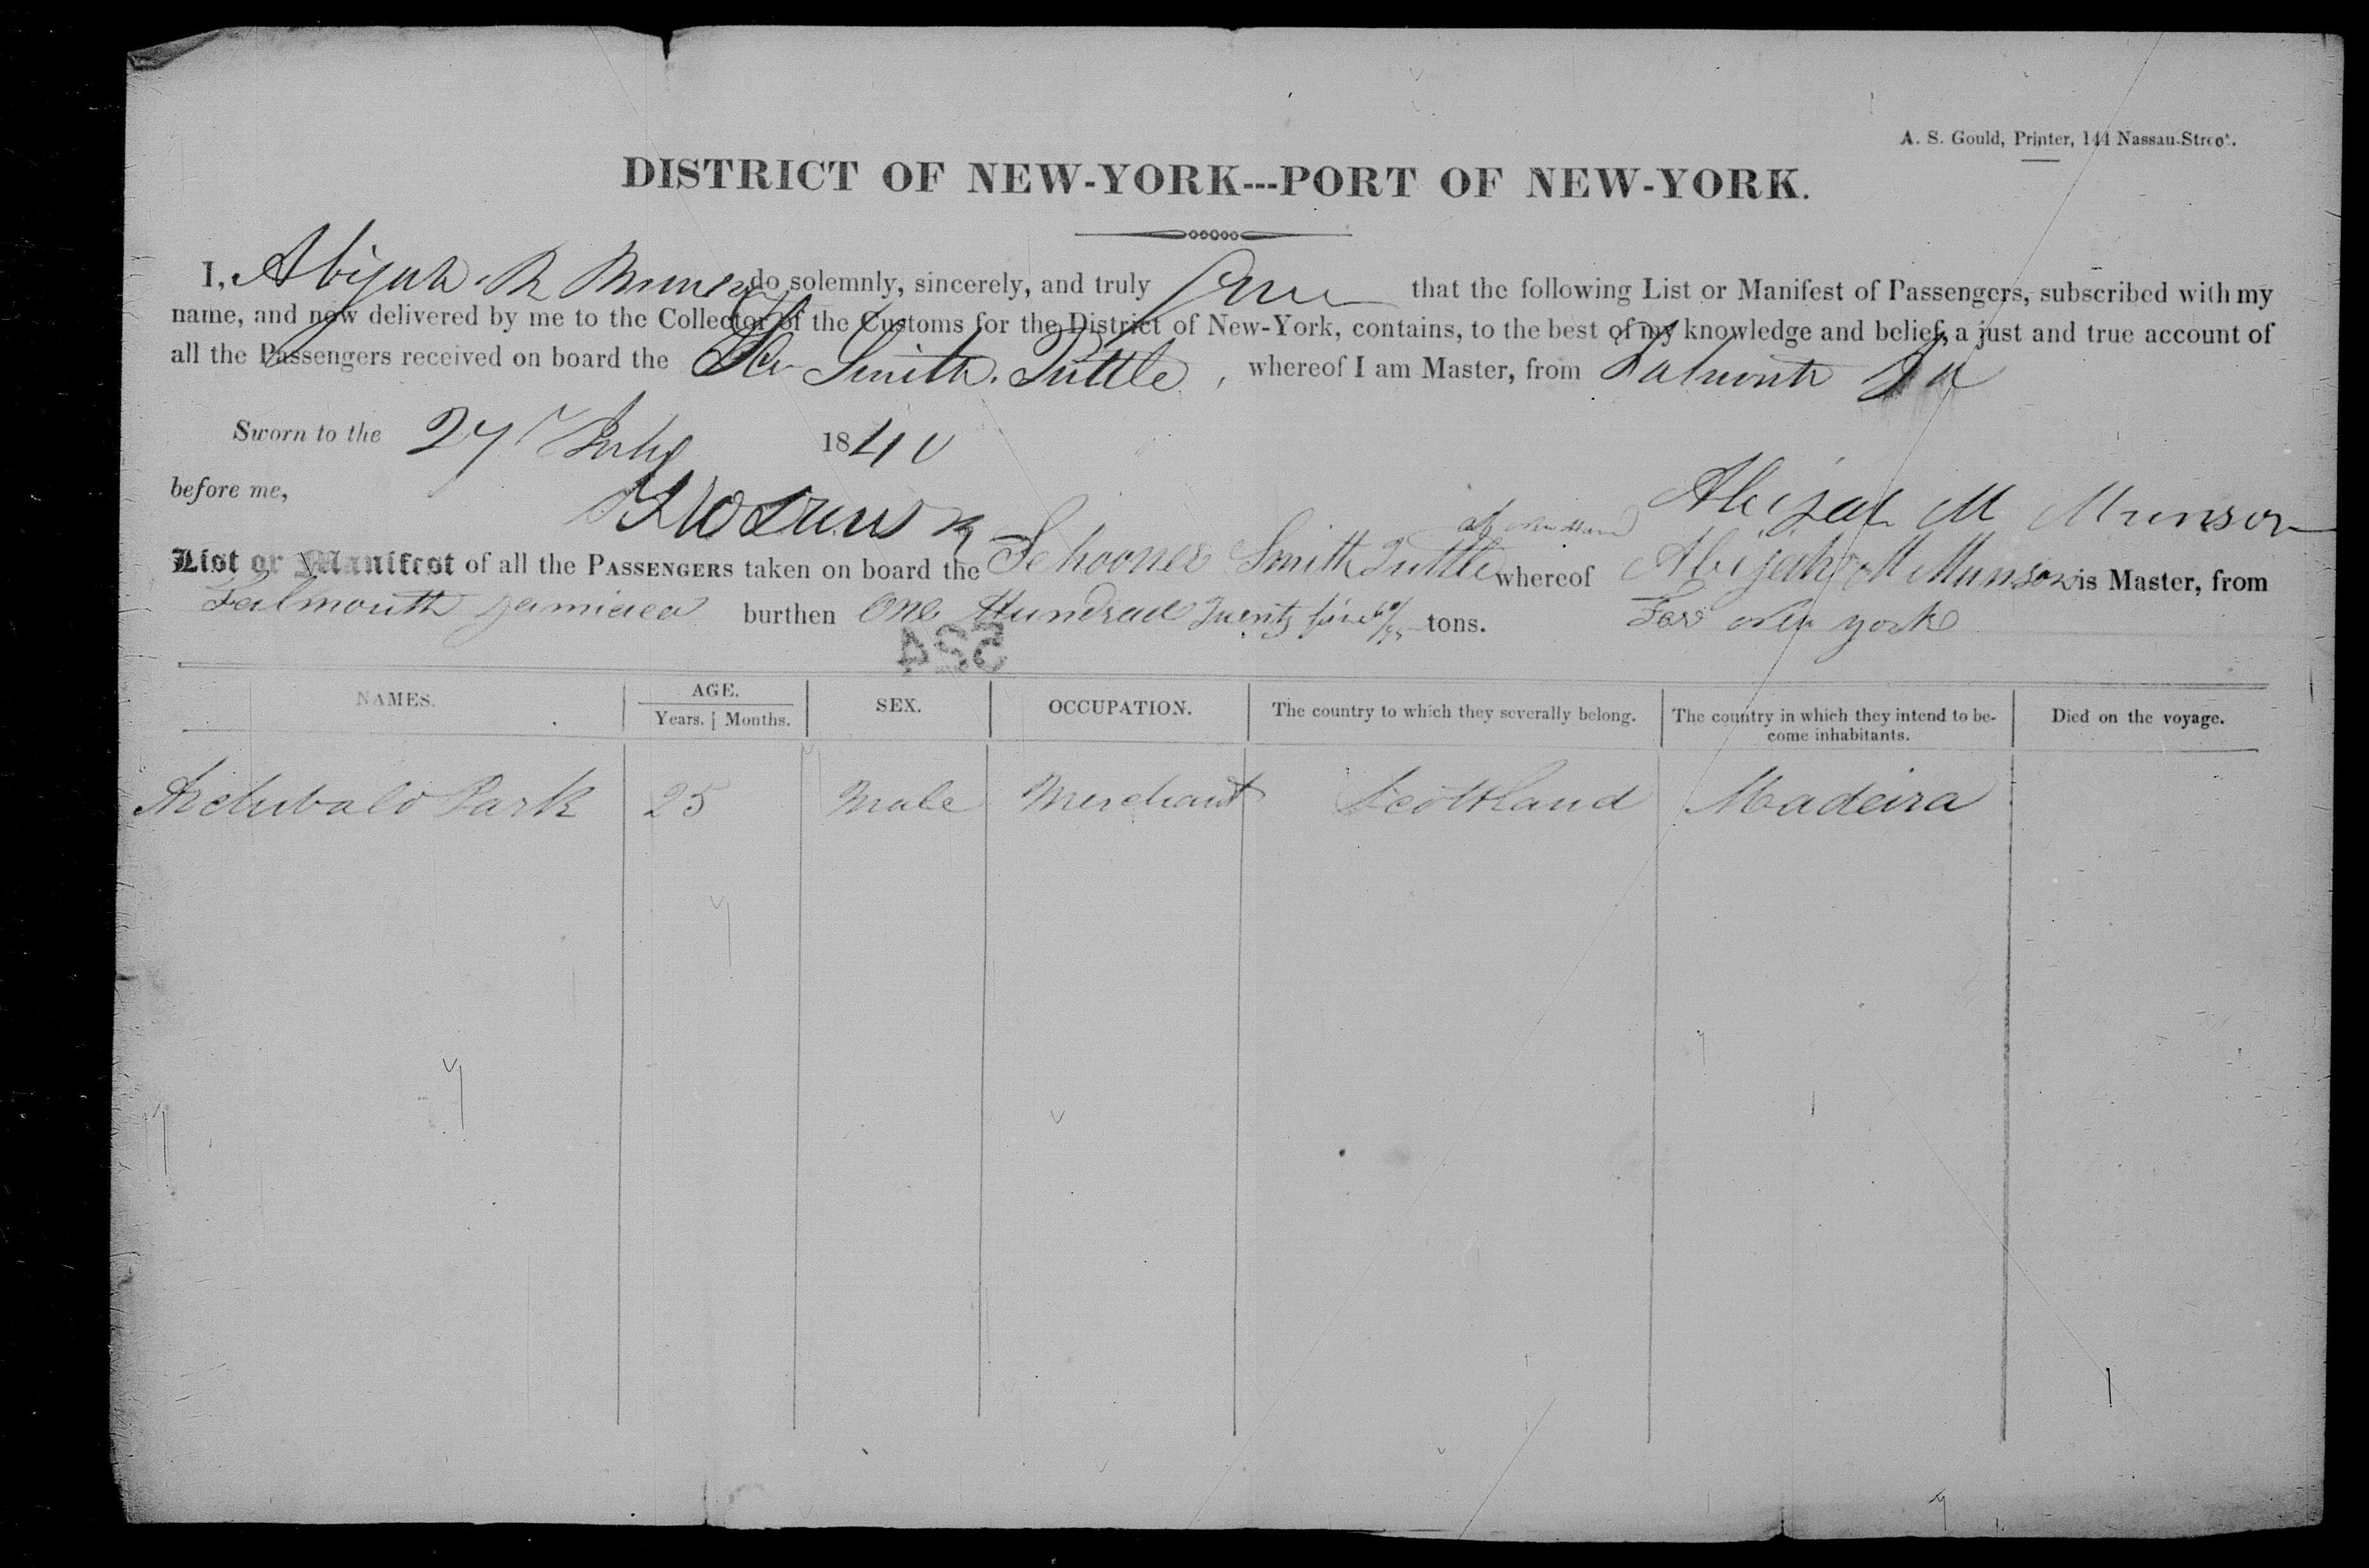 A. S. Gould, Printer, 144 Nassau-Street.
DISTRICT OF NEW-YORK---PORT OF NEW-YORK.
I, Abijah M Munson do solemnly, sincerely, and truly that the following List or Manifest of Passengers, subscribed with my
name, and now delivered by me to the Collector of the Customs for the District of New-York, contains, to the best of my knowledge and belief, a just and true account of
all the Passengers received on board the Schr Smith Tuttle, whereof I am Master, from Falmouth Ja
Sworn to the 27 1840
before me,
Abijah M Munson
List or Manifest of all the PASSENGERS taken on board the Schooner Smith Tuttle whereof Abijah M Munson is Master, from
Falmouth Jamiaca burthen One Hundred Twenty five tons. For New york
524
NAMES. AGE. SEX. OCCUPATION. The country to which they severally belong. The country in which they intend to be- Died on the voyage.
Years. Months. come inhabitants.
Archibald Park 25 Male Merchant Scottland Madeira